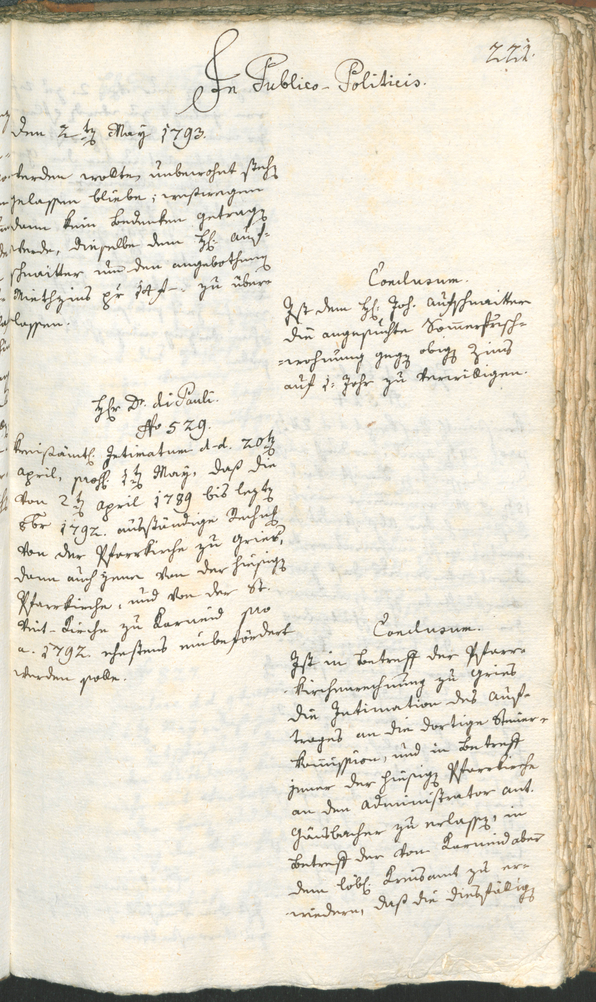 221.
In Publico-Politicis.
den 2tn May 1793.
werden wollte, unbewohnt steh
gelassen bliebe; weßwegen
dann kein Bedenken getrag
werde, dieselbe dem H: Auf-
schnaitter um den angebothenen
Miethzins pr 14f–. zu über-
lassen.
Conclusum.
Ist dem H: Joh. Aufschnaitter
die angesuchte Sommerfrisch-
wohnung geg obig Zins
auf 1. Jahr zu verwilligen.
Hr Dr. di Pauli.
No 529.
Kreisämtl. Intimatum d.d. 20tn
April, pros. 1tn May, daß die
von 2tn April 1789 bis lezt
8br 1792. ausständige Rechnung
von der Pfarrkirche zu Gries,
dann auch jene von der hiesig
Pfarrkirche, und von der St.
Veit-Kirche zu Karneid pro
a. 1792. ehestens einbefördert
werden solle.
Conclusum.
Ist in Betreff der Pfarr-
kirchenrechnung zu Gries
die Intimation des Auf-
trages an die dortige Steuer-
kommission, und in Betreff
jener der hiesig Pfarrkirche
an den Administrator Ant.
Gänsbacher zu erlass, in
Betreff der von Karneid aber
dem löbl. Kreisamt zu er-
wiedern, daß die diesfällig